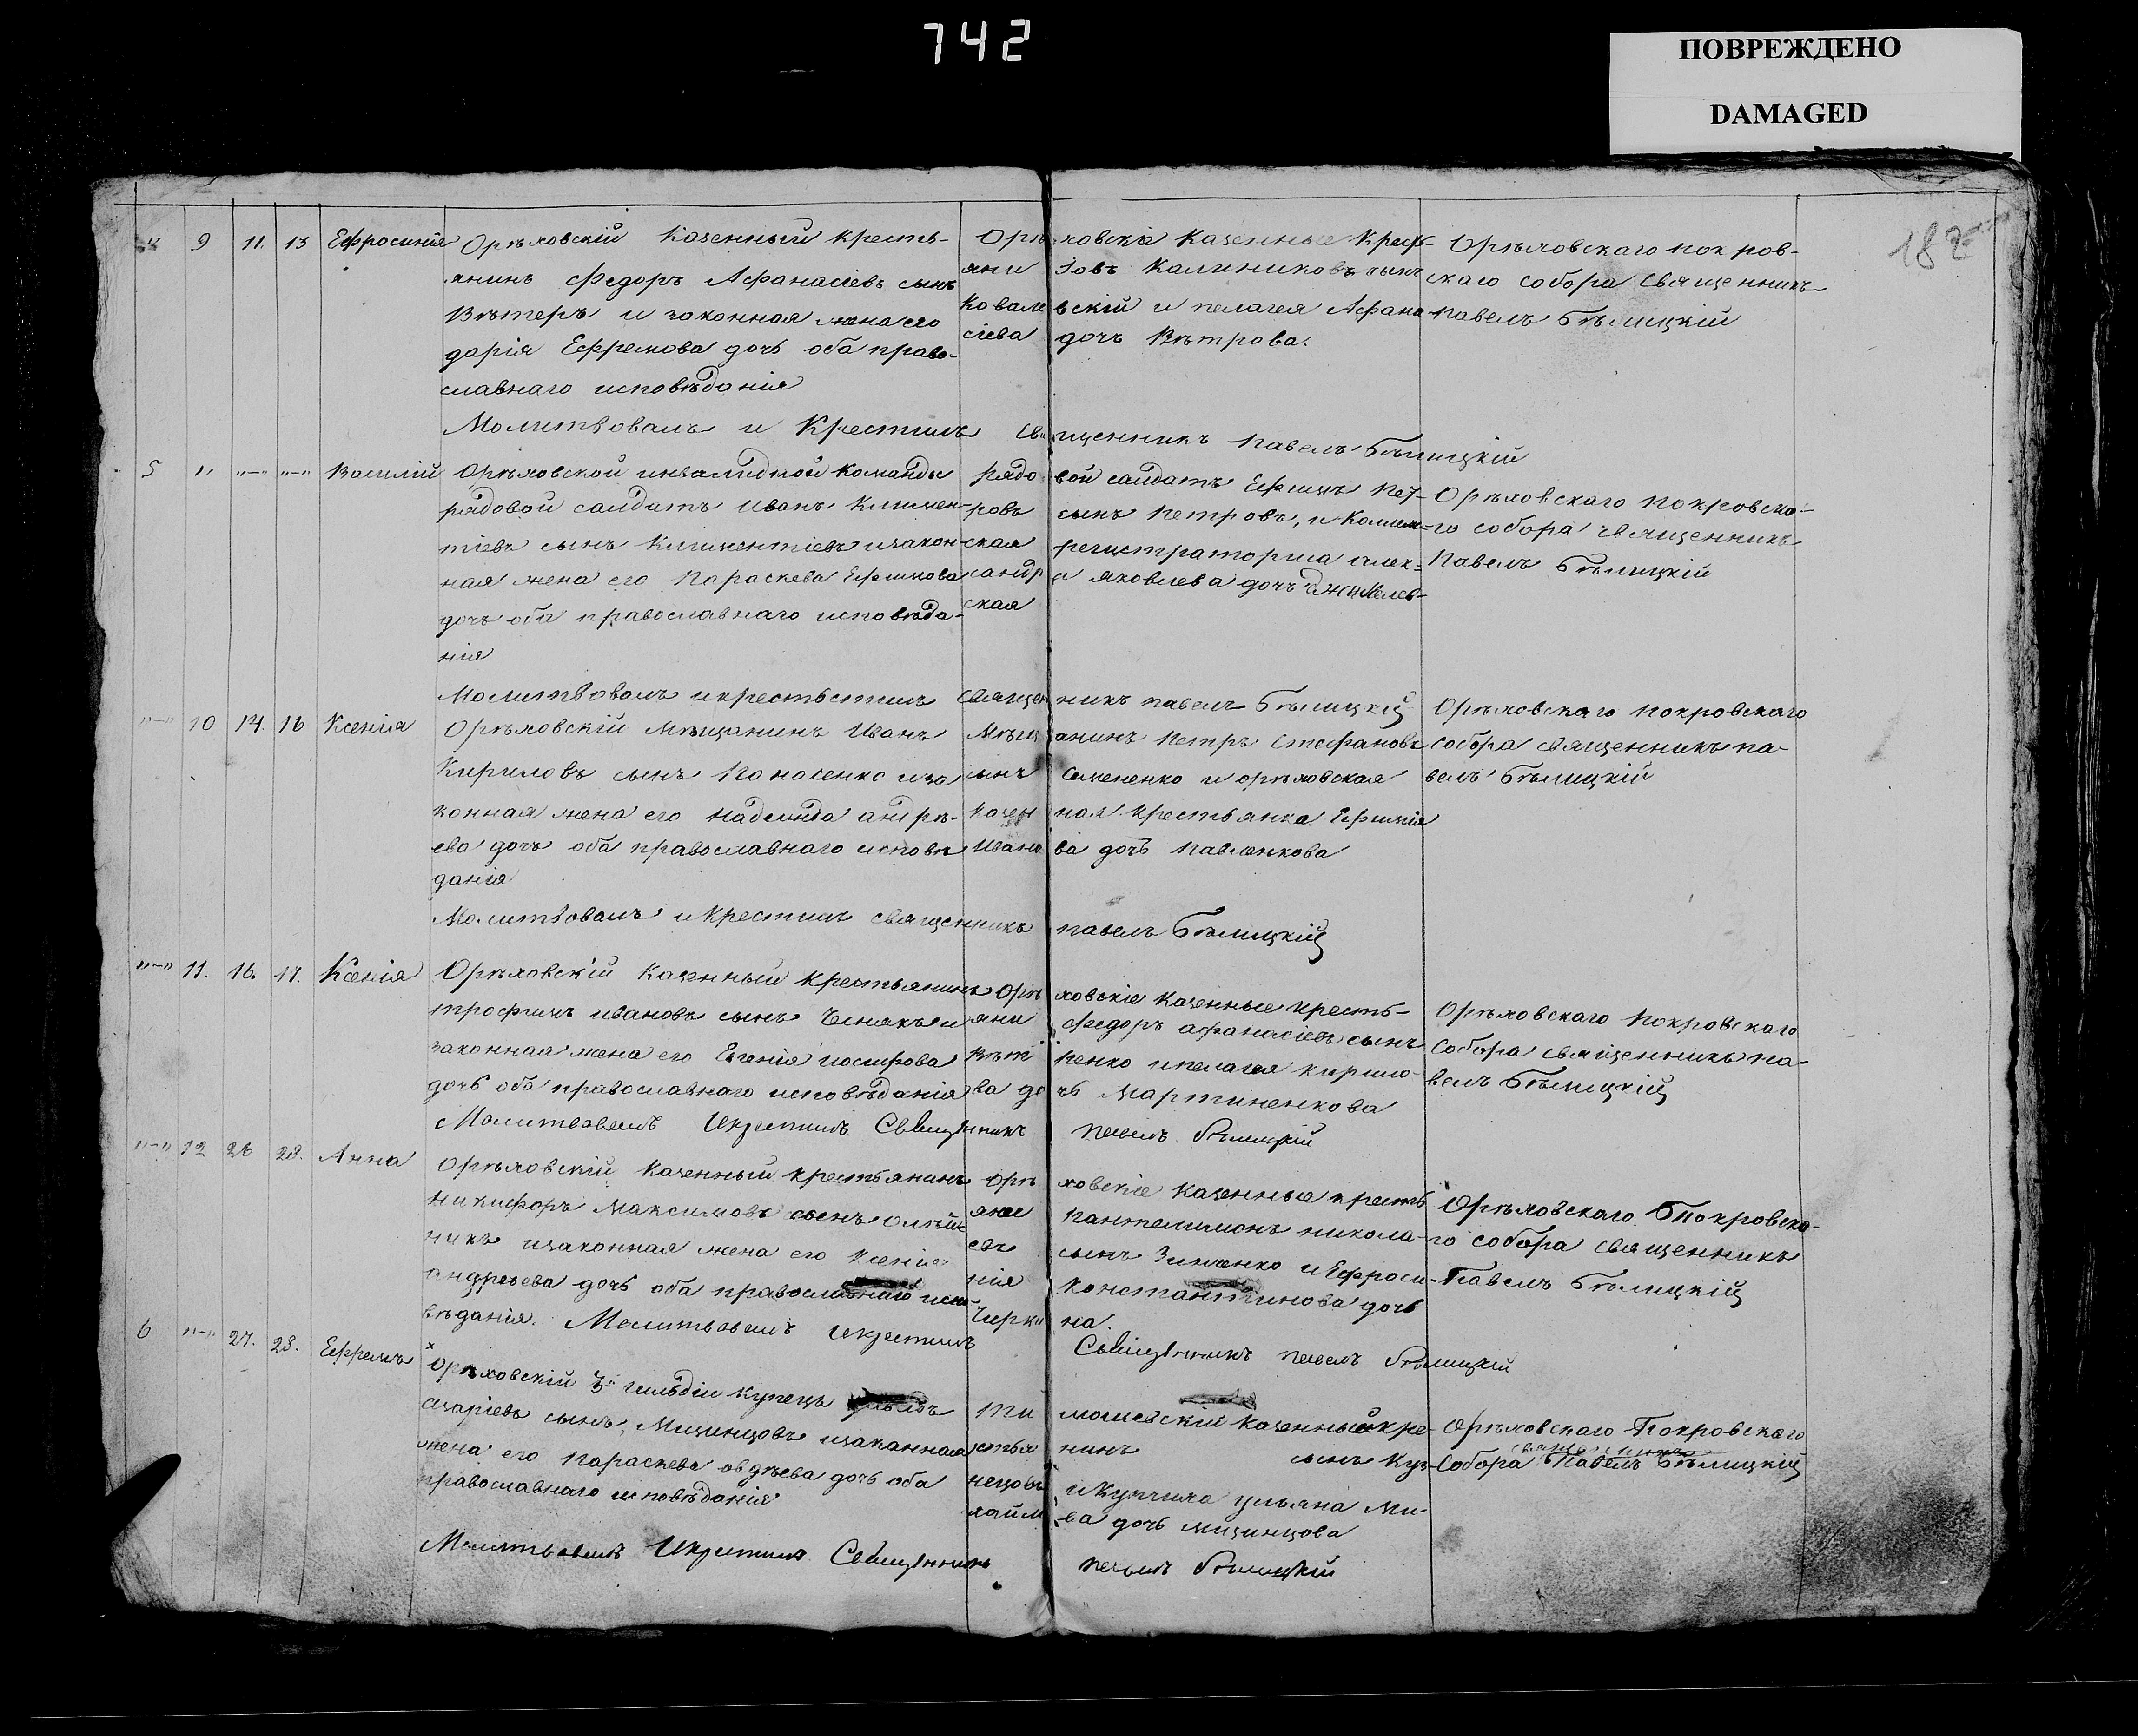 742
ПОВРЕЖДЕНО
DAMAGED
182
4 9 11. 13 Ефросинія Орѣховскій казенный кресть-
янинъ Федоръ Афанасіевъ сынъ
Вѣтеръ и законная жена его
дарія Ефремова дочь оба право-
славнаго исповѣданія
Орѣховскіе казенные Кресть-
яни Іовъ Калиниковъ сынъ
Ковалевскій и пелагея Афана-
сіева дочь Вѣтрова.
Орѣховскаго покров-
скаго собора священникъ
павелъ Бѣлицкій
Молитвовалъ и Крестилъ священникъ павелъ Бѣлицкій
5 " "—" "—" Василій Орѣховской инвалидной команды
рядовой салдатъ Иванъ Климен-
тіевъ сынъ Климентіевъ изакон-
ная жена его Параскева Ефимова
дочь оба православнаго исповѣда-
нія
рядовой салдатъ Ефимъ Пет-
ровъ сынъ Петровъ, и Колеж-
ская регистраторша алек-
сандра яковлева дочь
ская
Орѣховскаго Покровска-
го собора священникъ
Павелъ Бѣлицкій
Молитвовалъ икрестьстилъ священникъ павелъ Бѣлицкій
"—" 10 14. 16 Ксенія Орѣховскій Мѣщанинъ Иванъ
Кириловъ сынъ Панасенко иза
конная жена его надежда андрѣ-
ева дочь оба православнаго исповѣ
данія
Мѣщанинъ Петръ Стефановъ
сынъ Семененко и орѣховская
казенная крестьянка Ефимія
Иванова дочь павленкова
Орѣховскаго покровскаго
собора священникъ па-
велъ Бѣлицкій
Молитвовалъ икрестилъ священникъ павелъ Бѣлицкій
"—" 11. 16. 17. Ксенія Орѣховскій казенный крестьянинъ
трофимъ ивановъ сынъ и
законная жена его Евгенія иосифова
дочь оба православнаго исповѣданія
Орѣховскіе казенные кресть-
яни федоръ афанасіевъ сынъ
ипелагея кирило-
ва дочь Мартиненкова
Орѣховскаго Покровскаго
Собора священникъ па-
велъ Бѣлицкій
Молитвовалъ Икрестилъ Священникъ павелъ Бѣлицкій
"—" 12 26 28. Анна Орѣховскій казенный крестьянинъ
никифоръ максимовъ сынъ олѣй
никъ изаконная жена его Ксенія
андреева дочь оба православнаго испо-
вѣданія. Молитвовалъ икрестилъ
Орѣховскіе казенные кресть
яне Пантелимонъ никола-
евъ сынъ Зинченко и Ефроси-
нія Константинова дочь
на.
Орѣховскаго Покровска-
го собора священникъ
Павелъ Бѣлицкій
Священникъ павелъ Бѣлицкій
6 "—" 27. 28. Ефремъ Орѣховскій 3й гильдіи купецъ
азаріевъ сынъ, Мизинцовъ изаканная
жена его параскева авдѣева дочь оба
православнаго исповѣданія
Тимошевскій казенный кре-
стьянинъ сынъ Куз-
нецовъ и Купчиха ульяна Ми-
хайлова дочь мизинцова
Орѣховскаго Покровскаго
Собора священникъ Павелъ Бѣлицкій
Молитвовалъ Икрестилъ Священникъ павелъ Бѣлицкій